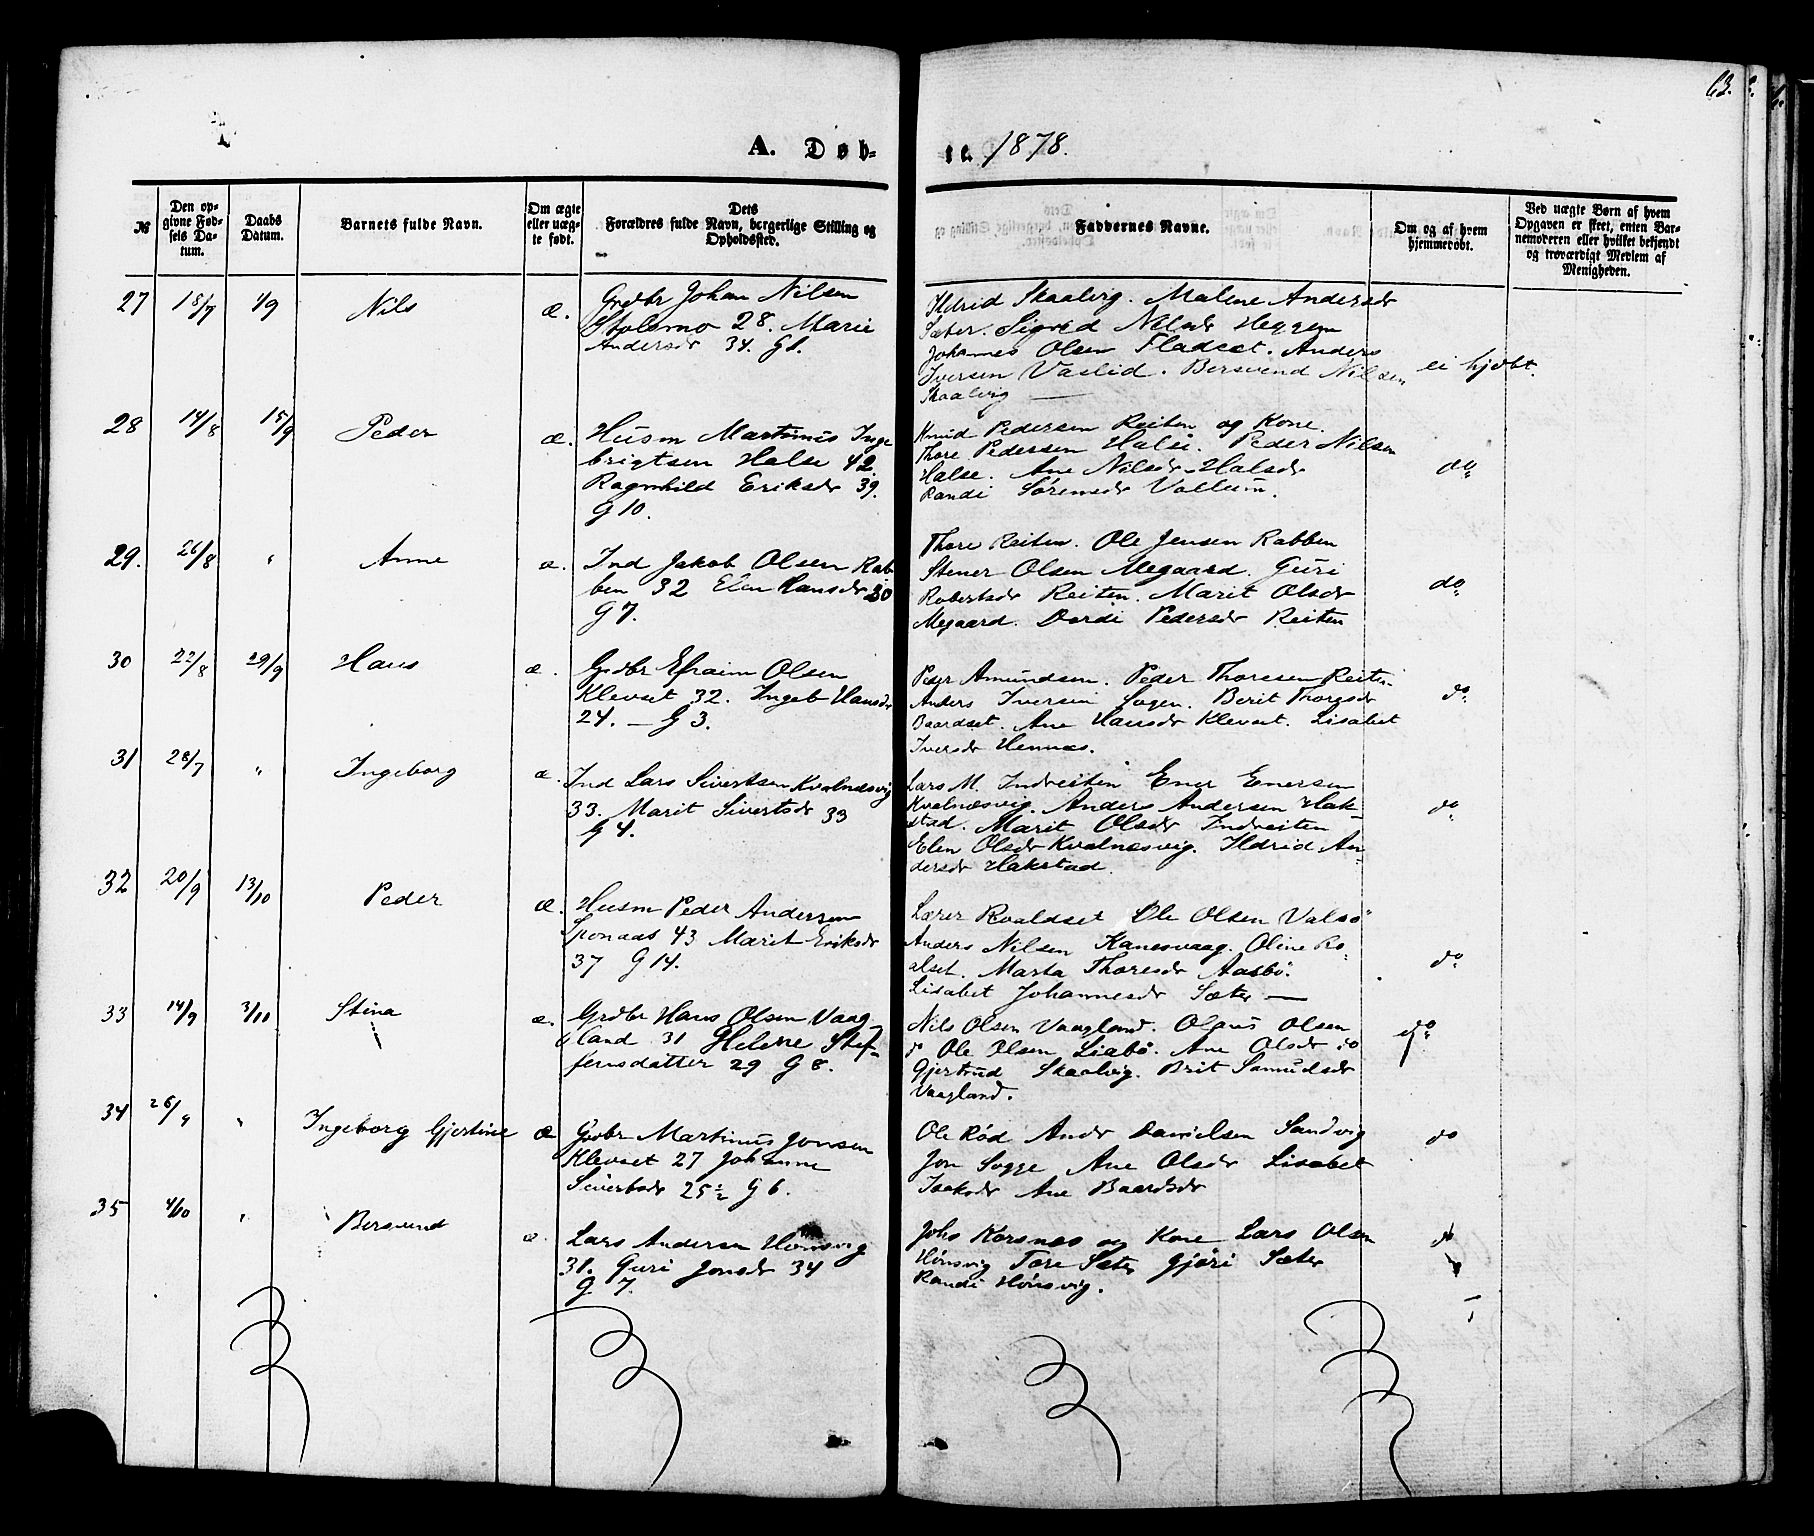 63.
A. Døb-
te. 1878.
№
Den op-
givne Fød-
sels Da-
tum.
Daabs
Datum.
Barnets fulde Navn.
Om ægte
eller uæg-
te født.
Dets
Forældres fulde Navn, borgerlige Stilling og
Opholdssted.
Faddernes Navne.
Om og af hvem
hjemmedøbt.
Ved uægte Børn af hvem
Opgaven er skeet, enten Bar-
nemoderen eller hvilket bekjendt
og troværdigt Medlem af
Menigheden.
27 18/7 1/9 Nils æ.
Grdbr Johan Nilsen
Stolsmo 28. Marie
Andersdr 34. G 1.
Ildrid Skaalvig. Malene Andersdr
Sæter. Sigrid Nilsdr Heggem
Johannes Olsen Fladset. Anders
Iversen Vaslid. Bersvend Nilsen
Skaalvig
ei hjdbt.
28 14/8 15/9 Peder æ.
Husm Martinus Inge
brigtsen Halse 42.
Ragnhild Eriksdr 39.
G 10.
Knud Pedersen Reiten og Kone.
Thore Pedersen Halse. Peder Nilsen
Halse. Ane Nilsdr Halsdr
Randi Sørensdr Vollum.
do
29. 26/8 " Anne æ.
Ind Jakob Olsen Rab
ben 32 Elen Hansdr 30
G 7.
Thore Reiten. Ole Jensen Rabben
Stener Olsen Megaard. Guri
Robertsdr Reiten. Marit Olsdr
Megaard. Dordi Pedersdr Reiten
do
30 22/8 29/9 Hans æ.
Grdbr Efraim Olsen
Klevset 32. Ingeb Hansdr
24. — G 3.
Peder Amundsen. Peder Thoresen Reiten
Anders Iversen Sogen. Berit Thoresdr
Baardset. Ane Hansdr Klevset. Lisabet
Iversdr Hennæs.
do
31 28/7 " Ingeborg æ.
Ind Lars Sivertsen Kvalnæsvig
33. Marit Sivertsdr 33
G 4.
Lars M. Indreiten Ener Enersen
Kvalnæsvig. Anders Andersen Hak-
stad. Marit Olsdr Indreiten
Elen Olsdr Kvalnæsvig. Ildrid An-
dersdr Hakstad.
do
32 20/9 13/10 Peder æ.
Husm Peder Andersen
Sponaas 43 Marit Eriksdr
37 G 14.
Lærer Roaldset Ole Olsen Valsø
Anders Nilsen Kanesvaag. Oline Ro-
alset. Marta Thoresdr Aasbø.
Lisabet Johannesdr Sæter —
do
33 14/9 3/11 Stina æ.
Grdbr Hans Olsen Vaag-
land 31 Helene Stef-
fensdatter 29 G 8.
Nils Olsen Vaagland. Olaus Olsen
do Ole Olsen Liabø. Ane Olsdr do
Gjertrud Skaalvig. Brit Samuelsdr
Vaagland.
do
34 26/9 " Ingeborg Gjertine æ
Grdbr Martinus Jonsen
Klevset 27 Johanne
Sivertsdr 25½ G 6.
Ole Rød Andr Danielsen Sandvig
Jon Sogge Ane Olsdr Lisabet
Isaksdr Ane Baardsdr
do
35 4/10 " Bersvend æ.
Lars Andersen Hønsvig
31. Guri Jonsdr 34
G 7.
Johs Korsnæs og Kone Lars Olsen
Hønsvig Tore Sæter Gjøri Sæter
Randi Hønsvig.
do